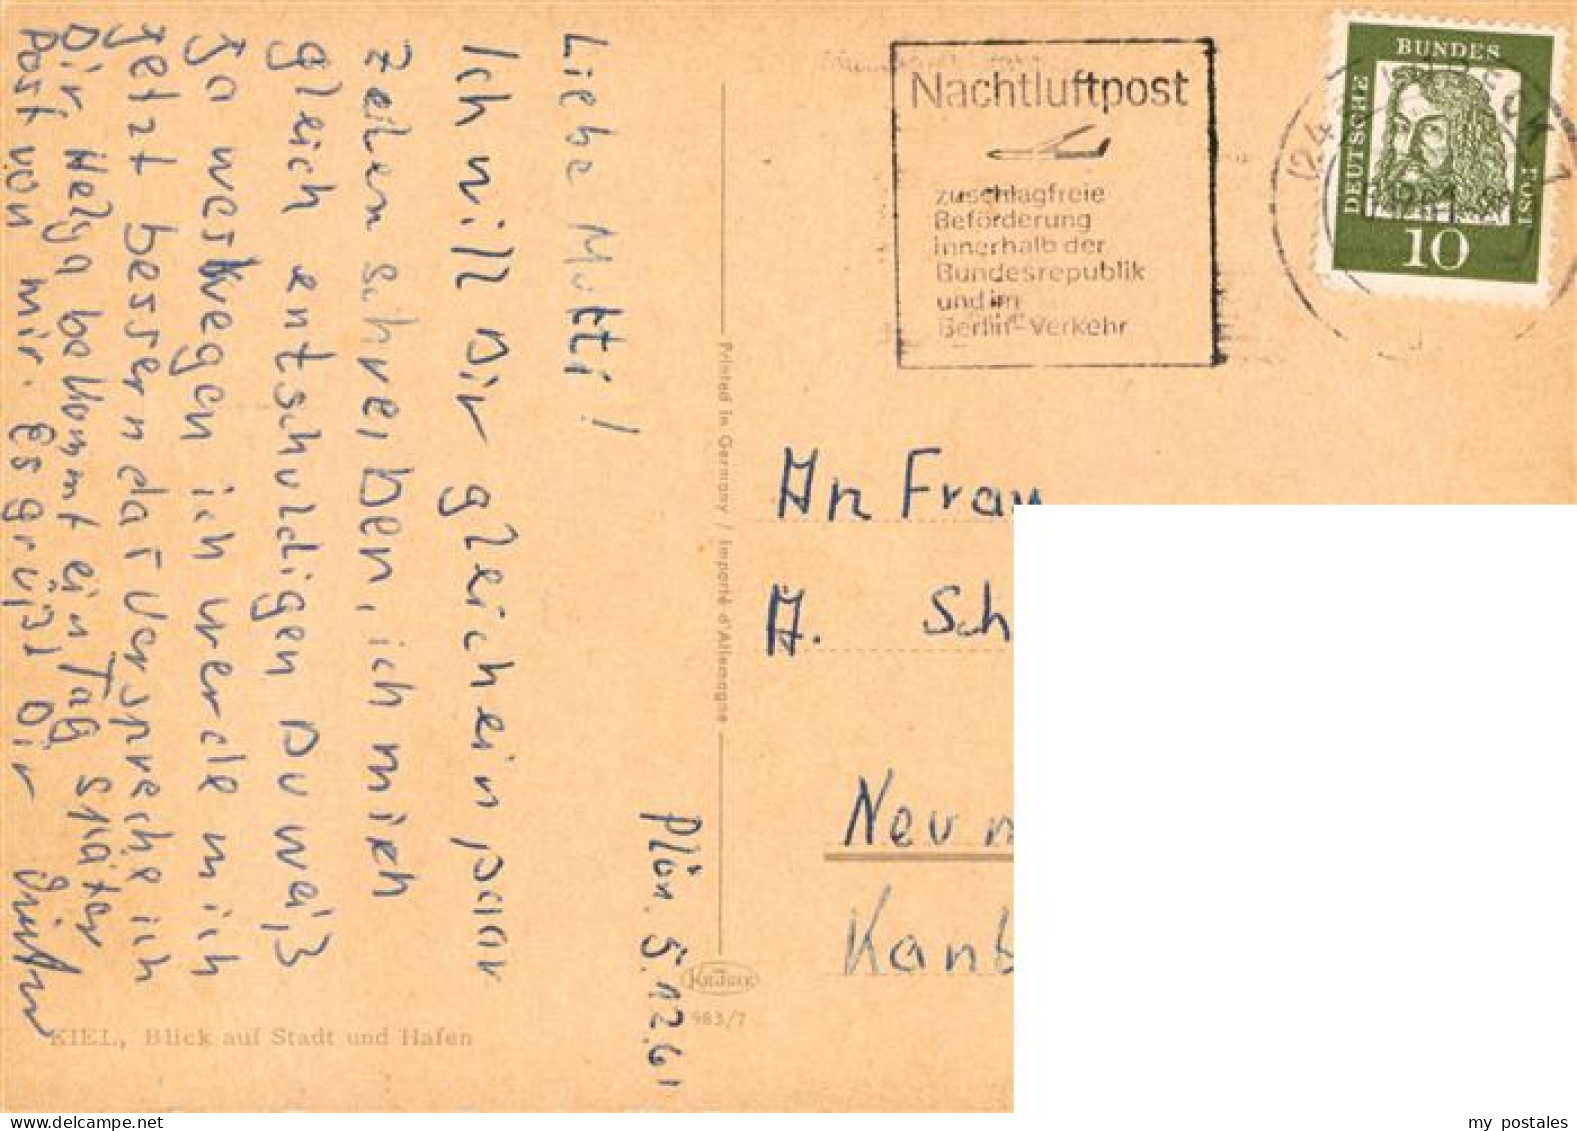 Plön. 5.12.61
Liebe Mutti!
Ich will Dir gleich ein paar
zeilen schreiben, ich mich
gleich entschuldigen Du weiß
ja weswegen ich werde mich
jetzt bessern daf versprche ich
Dir Helga bekommt ein Tag später
Post von mir. Es grüßt Dir
KIEL, Blick auf Stadt und Hafen
Printed in Germany / Importé d'Allemagne
KRÜGER
983/7
Nachtluftpost
zuschlagfreie
Beförderung
innerhalb der
Bundesrepublik
und im
Berlin-Verkehr
DEUTSCHE
BUNDES
POST
10
An Frau
A. Sch
Neum
Kanb
my postales